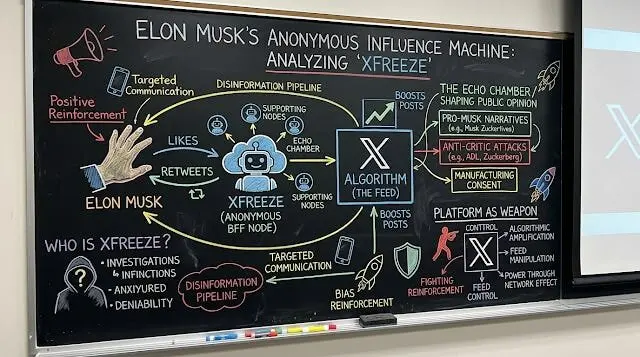 ELON MUSK'S ANONYMOUS INFLUENCE MACHINE:
ANALYZING 'XFREEZE'
Targeted
Communication
Positive
Reinforcement
ELON MUSK
DISINFORMATION PIPELINE
LIKES
RETWEETS
SUPPORTING
NODES
ECHO
CHAMBER
SUPPORTING
NODES
XFREEZE
(ANONYMOUS
BFF NODE)
X
ALGORITHM
(THE FEED)
BOOSTS
POSTS
BOOSTS
POSTS
THE ECHO CHAMBER/
SHAPING PUBLIC OPINION
PRO-MUSK NARRATIVES
(e.g., Musk Zuckertives)
ANTI-CRITIC ATTACKS
(e.g., ADL, Zuckerberg)
MANUFACTURING
CONSENT
WHO IS XFREEZE?
?
• INVESTIGATIONS
↳ INFINCTIONS
• ANXIYURED
• DENIABILITY
DISINFORMATION
PIPELINE
TARGETED
COMMUNICATION
BIAS
REINFORCEMENT
PLATFORM AS WEAPON
CONTROL
X
FEED
CONTROL
FIGHTING
REINFORCEMENT
ALGORITHMIC
AMPLIFICATION
FEED
MANIPULATION
POWER THROUGH
NETWORK EFFECT
X